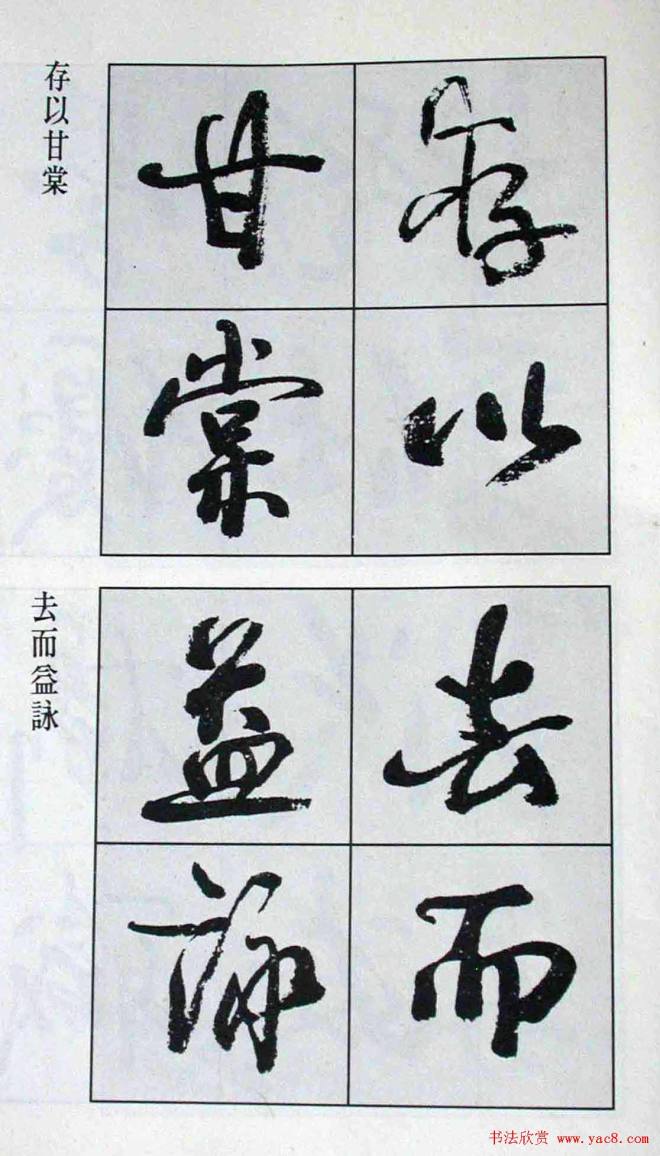 存以甘棠
存以
甘棠
去而益詠
去而
益詠
书法欣赏 www.yac8.com